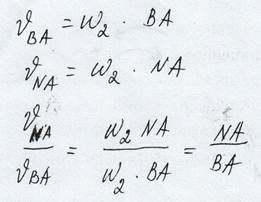 ϑ_BA = ω₂ · BA
ϑ_NA = ω₂ · NA
ϑ_NA / ϑ_BA = ω₂ NA / ω₂ · BA = NA / BA